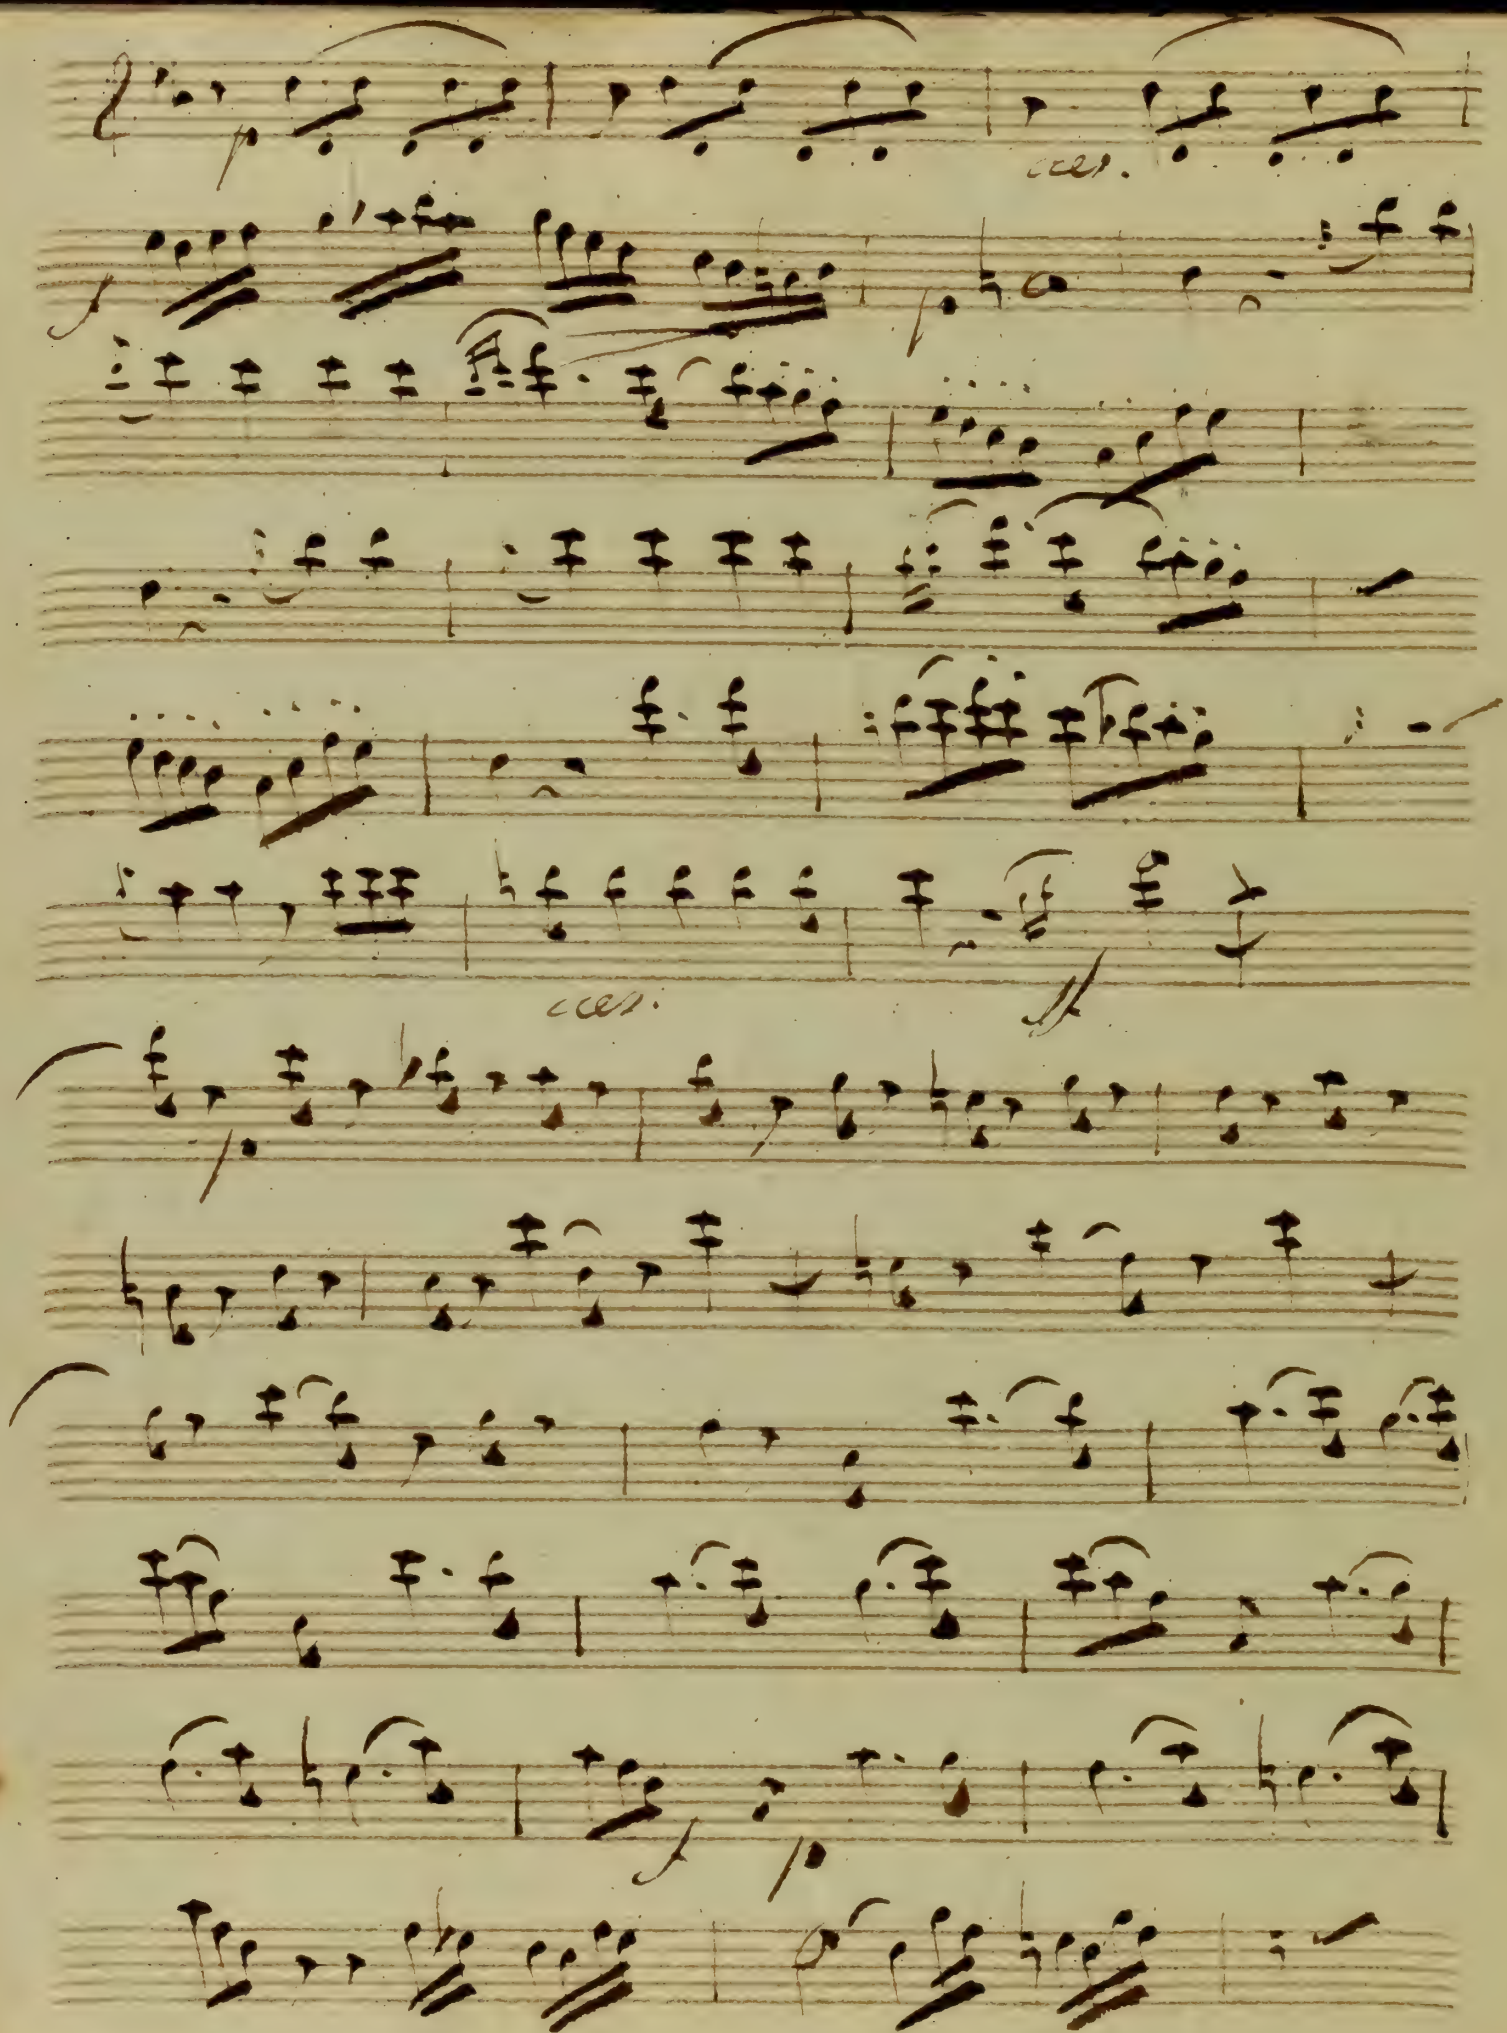 p cres.
f p
cres. ff
p
f p